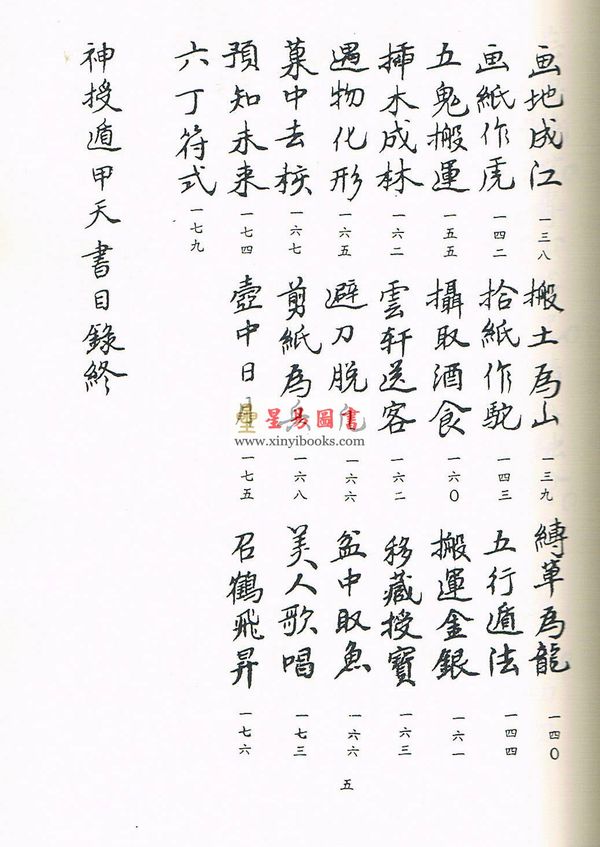 画地成江 一三八 搬土為山 一三九 縛草為龍 一四〇
画紙作虎 一四二 拾紙作駝 一四三 五行遁法 一四四
五鬼搬運 一五五 攝取酒食 一六〇 搬運金銀 一六一
插木成林 一六二 雲軒送客 一六二 移藏授寶 一六三
遇物化形 一六五 避刀脫 一六六 盆中取魚 一六六
菓中去核 一六七 剪紙為兵 一六八 美人歌唱 一七三
預知未来 一七四 壺中日月 一七五 召鶴飛昇 一七六
六丁符式 一七九
神授遁甲天書目錄終
五
星易圖書
www.xinyibooks.com